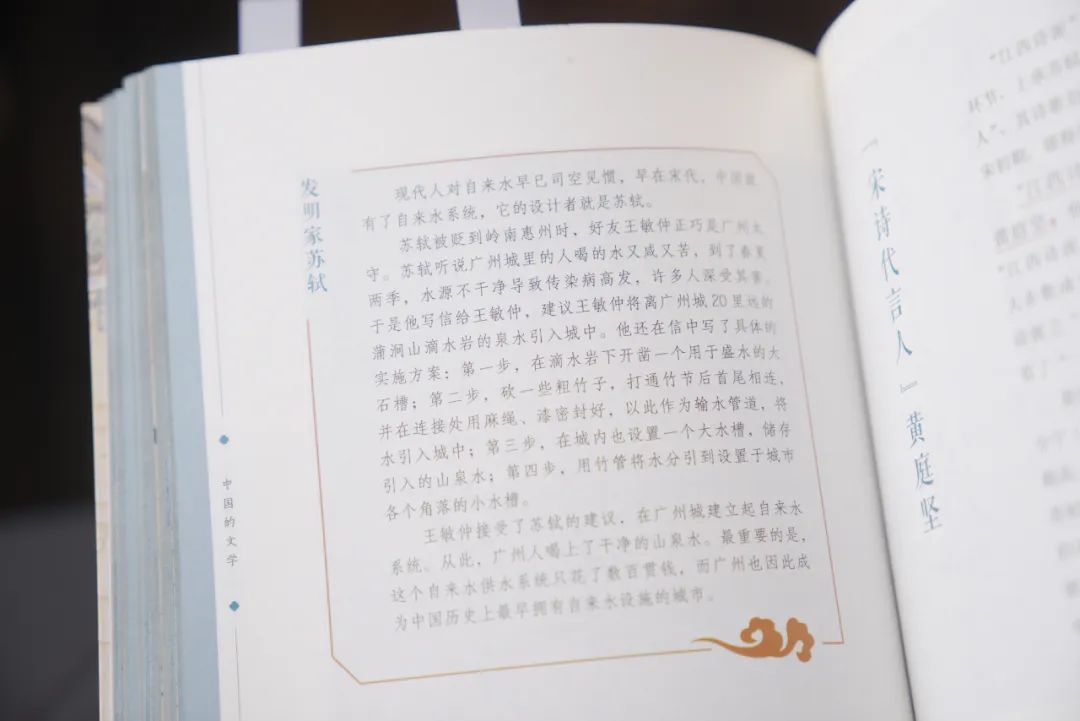 发明家苏轼
现代人对自来水早已司空见惯，早在宋代，中国就
有了自来水系统，它的设计者就是苏轼。
苏轼被贬到岭南惠州时，好友王敏仲正巧是广州太
守。苏轼听说广州城里的人喝的水又咸又苦，到了春夏
两季，水源不干净导致传染病高发，许多人深受其害。
于是他写信给王敏仲，建议王敏仲将离广州城20里远的
蒲涧山滴水岩的泉水引入城中。他还在信中写了具体的
实施方案：第一步，在滴水岩下开凿一个用于盛水的大
石槽；第二步，砍一些粗竹子，打通竹节后首尾相连，
并在连接处用麻绳、漆密封好，以此作为输水管道，将
水引入城中；第三步，在城内也设置一个大水槽，储存
引入的山泉水；第四步，用竹管将水分引到设置于城市
各个角落的小水槽。
王敏仲接受了苏轼的建议，在广州城建立起自来水
系统。从此，广州人喝上了干净的山泉水。最重要的是，
这个自来水供水系统只花了数百贯钱，而广州也因此成
为中国历史上最早拥有自来水设施的城市。
中国的文学
“宋诗代言人”黄庭坚
“江西诗派”
环节，上承苏轼
人”，其诗歌